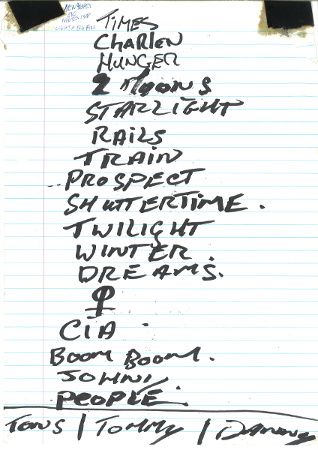 TIMES
CHARLEN
HUNGER
2 MOONS
STARLIGHT
RAILS
TRAIN
PROSPECT
SHUTTERTIME.
TWILIGHT
WINTER.
DREAMS.
CIA.
BOOM BOOM.
JOHNNY
PEOPLE.
TOMMY